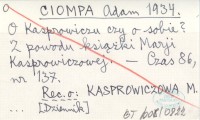 o CIOMPA Adam 1934.
O Kasprowiczu czy o sobie?
Z powodu książki Marji
Kasprowiczowej. — Czas 86,
nr 137.
Rec. o: KASPROWICZOWA M.
... [Dziennik]